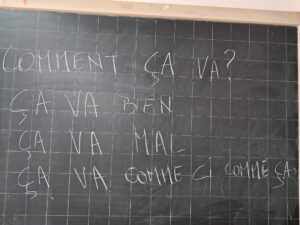 COMMENT ÇA VA?
ÇA VA BEN
ÇA VA MAL
ÇA VA COMME CI COMME ÇA